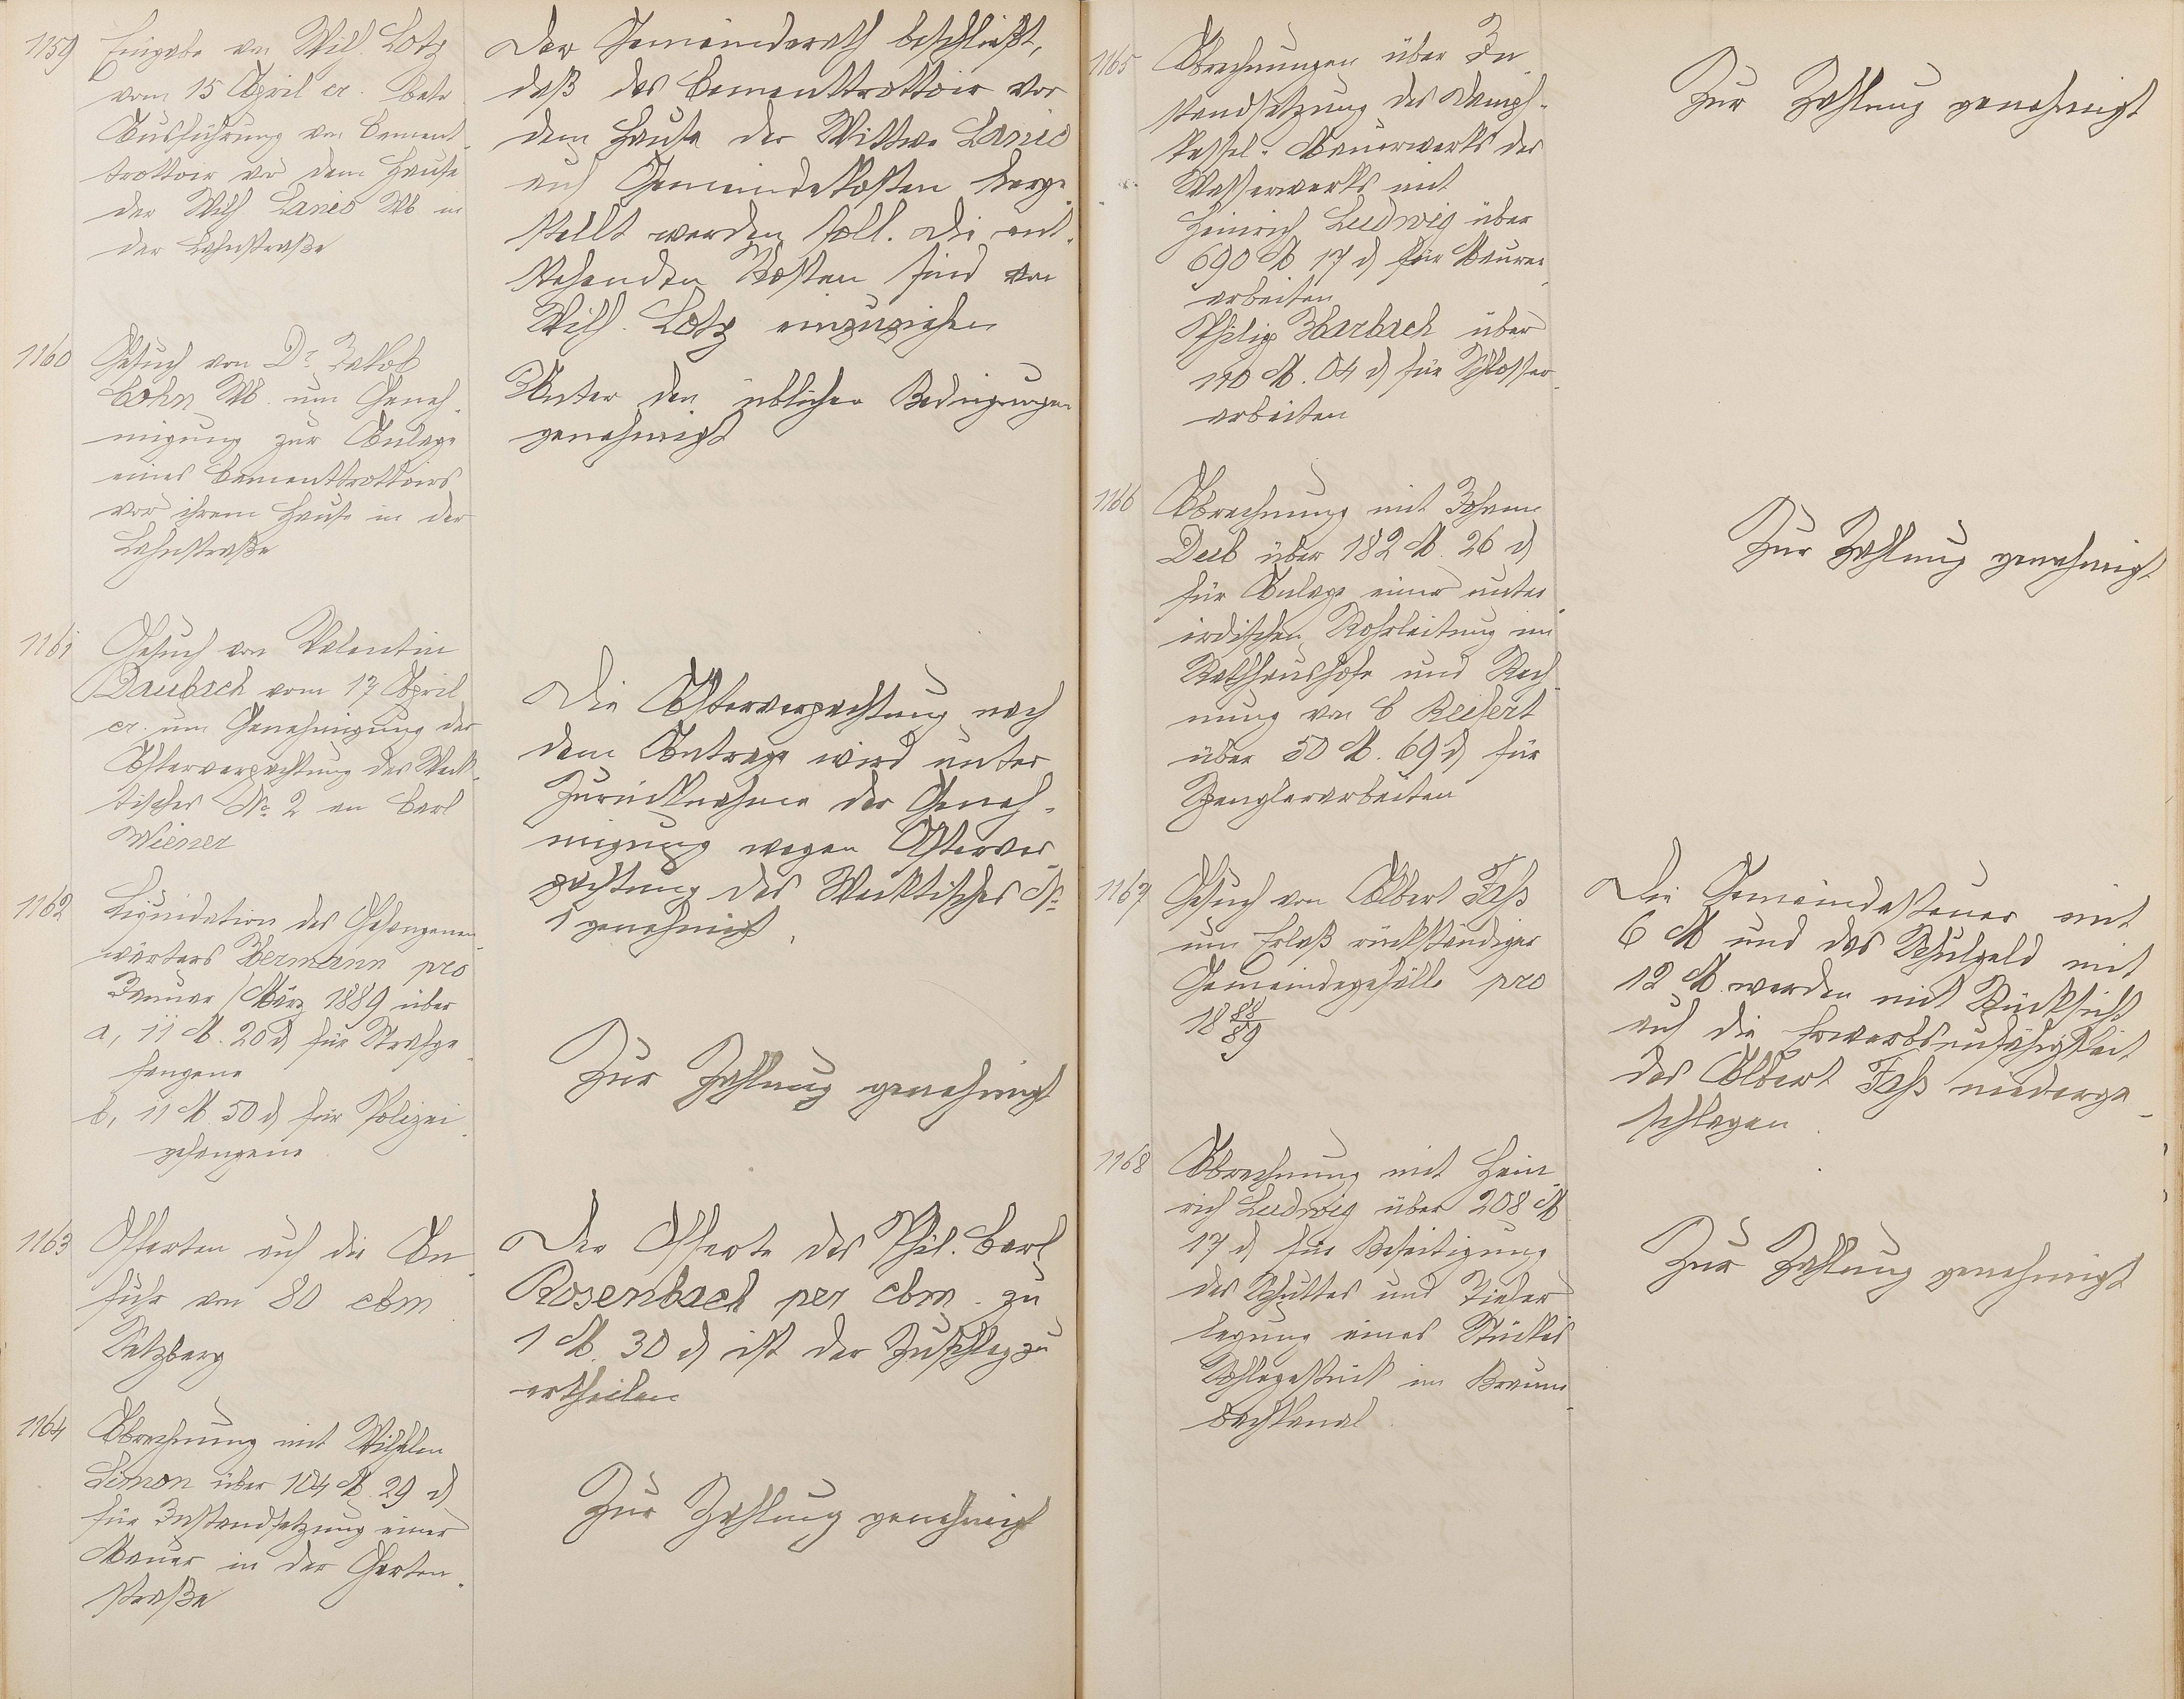 1159 Eingabe von Wilh. Lotz
vom 15 April cr. betr.
Ausführung von Cement-
trottoir vor dem Hause
der Wilh. Lanio Wb in
der Lahnstraße
Der Gemeinderath beschließt,
daß das Cementtrottoir vor
dem Hause der Wittwe Lanio
auf Gemeindekosten herge-
stellt werden soll. Die ent-
stehenden Kosten sind von
Wilh. Lotz einzuziehen
1160 Gesuch von Dr. Jakob
Cohn Wb. um Geneh-
migung zur Anlage
eines Cementtrottoirs
vor ihrem Hause in der
Lahnstraße
Unter den üblichen Bedingungen
genehmigt
1161 Gesuch von Valentin
Daubach vom 17 April
cr. um Genehmigung der
Afterverpachtung des Weck-
tisches No. 2 an Carl
Wiener
Die Afterverpachtung nach
dem Antrage wird unter
Zurücknahme der Geneh-
migung wegen Afterver-
pachtung des Wecktisches No.
1 genehmigt.
1162 Liquidation des Gefangenen-
wärters Hermann pro
Januar / März 1889 über
a, 11 M. 20 d für Strafge-
fangene
b, 11 M. 50 d für Polizei-
gefangene
Zur Zahlung genehmigt
1163 Offerten auf die An-
fuhr von 80 cbm
Setzberg
Der Offerte des Phil. Carl
Rosenbach per cbm. zu
1 M. 30 d ist der Zuschlag zu
ertheilen
1164 Abrechnung mit Wilhelm
Simon über 104 M. 29 d
für Instandsetzung einer
Mauer in der Garten-
straße
Zur Zahlung genehmigt
1165 Abrechnungen über In-
standsetzung des Dampf-
kessel-Mauerwerks des
Wasserwerks mit
Heinrich Ludwig über
690 M 17 d für Maurer-
arbeiten
Philipp Harbach über
110 M. 04 d für Schlosser-
arbeiten
Zur Zahlung genehmigt
1166 Abrechnung mit Johann
Deeb über 182 M. 26 d
für Anlage einer unter-
irdischen Rohrleitung im
Rathhaushofe und Rech-
nung von C Reifert
über 50 M. 69 d für
Spenglerarbeiten
Zur Zahlung genehmigt
1167 Gesuch von Albert Faß
um Erlaß rückständiger
Gemeindegefälle pro
18 88/89
Die Gemeindesteuer mit
6 M und das Schulgeld mit
12 M. werden mit Rücksicht
auf die Erwerbsunfähigkeit
des Albert Faß niederge-
schlagen.
1168 Abrechnung mit Hein-
rich Ludwig über 208 M
17 d für Beseitigung
des Schuttes und Tiefer-
legung eines Stückes
im Braun-
bachkanal.
Zur Zahlung genehmigt